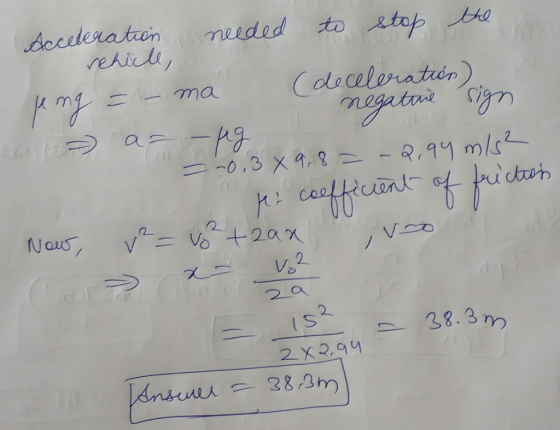 Acceleration needed to stop the
vehicle,
μ mg = - ma (deceleration) negative sign
⇒ a = - μg
= -0.3 × 9.8 = - 2.94 m/s²
μ: coefficient of friction
Now, v² = v₀² + 2ax , v=0
⇒ x = v₀²/2a
= 15²/2×2.94 = 38.3m
Answer = 38.3m